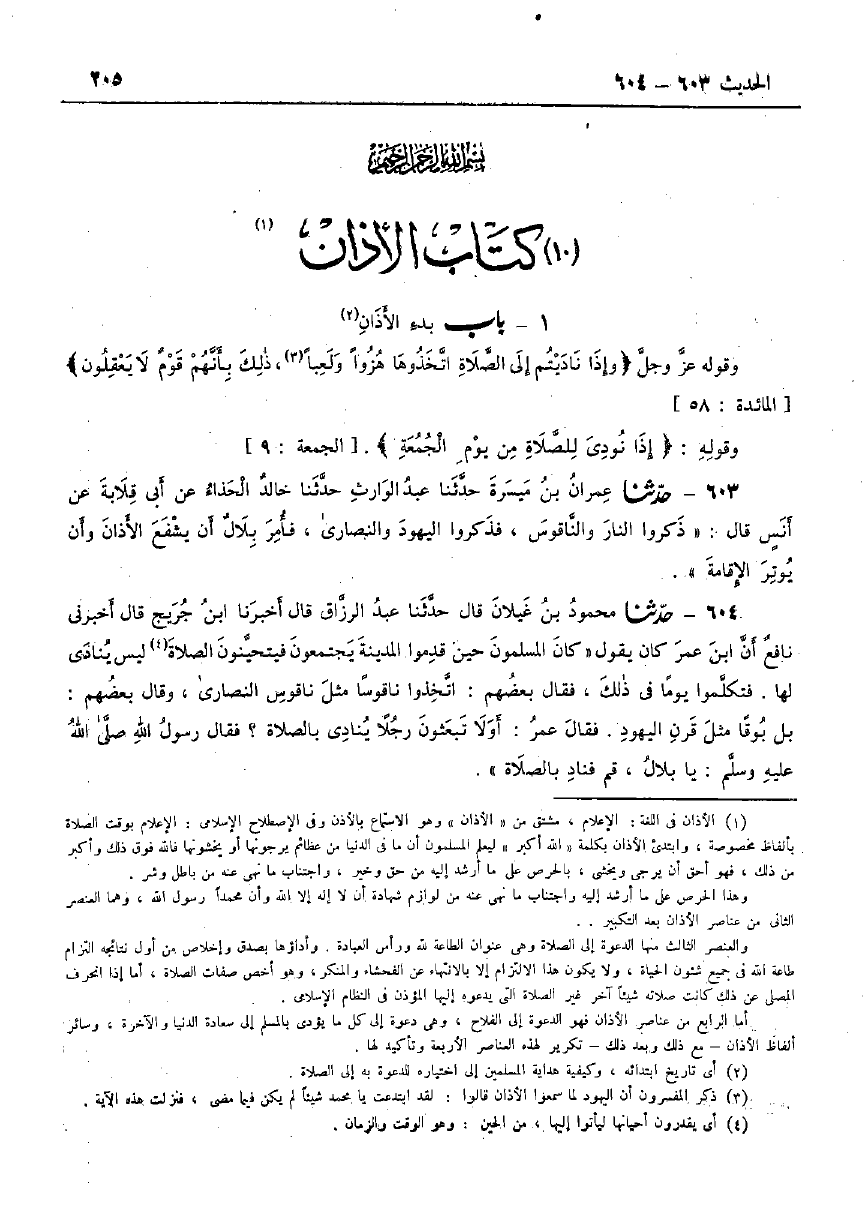 الحديث ٦٠٣ – ٦٠٤ ٢٠٥
بسم الله الرحمن الرحيم
(١٠) كتاب الأذان (١)
١ – باب بدء الأَذَانِ(٢)
وقوله عزَّ وجلَّ ﴿ وإِذَا نَادَيْتُم إِلَى الصَّلَاةِ اتَّخَذُوهَا هُزُواً وَلَعِباً(٣)، ذٰلِكَ بِأَنَّهُمْ قَوْمٌ لَا يَعْقِلُون ﴾
[ المائدة : ٥٨ ]
وقولِهِ : ﴿ إِذَا نُودِىَ لِلصَّلَاةِ مِن يوْمِ الْجُمُعَةِ ﴾ . [ الجمعة : ٩ ]
٦٠٣ – حدّثنا عِمرانُ بنُ مَيسَرةَ حدَّثَنا عبدُ الوَارثِ حدَّثَنا خالدٌ الْحَذاءُ عن أبى قِلَابةَ عن
أَنَسٍ قال : « ذَكروا النارَ والنَّاقوسَ ، فذَكروا اليهودَ والنصارىٰ ، فأُمِرَ بِلَالٌ أن يشْفَعَ الأذانَ وأن
يُوتِرَ الإِقامةَ » .
٦٠٤ – حدّثنا محمودُ بنُ غَيلانَ قال حدَّثَنا عبدُ الرزّاق قال أخبرَنا ابنُ جُرَيج قال أخبرنى
نافعٌ أنَّ ابنَ عمرَ كان يقول « كانَ المسلمونَ حينَ قدِموا المدينةَ يَجتمعونَ فيتحيَّنونَ الصلاةَ(٤) ليس يُنادَى
لها . فتكلَّموا يومًا فى ذٰلكَ ، فقال بعضُهم : اتَّخِذوا ناقوسًا مثلَ ناقوسِ النصارىٰ ، وقال بعضُهم :
بل بُوقًا مثلَ قَرنِ اليهودِ . فقالَ عمرُ : أَوَلَا تَبعَثونَ رجُلًا يُنادِى بالصلاة ؟ فقال رسولُ اللهِ صلَّى اللهُ
عليهِ وسلَّم : يا بلالُ ، قم فنادِ بالصلَاة » .
(١) الأذان فى اللغة : الإعلام ، مشتق من « الأذان » وهو الاستماع بالأذن وفى الإصطلاح الإسلامى : الإعلام بوقت الصلاة
بألفاظ مخصوصة ، وابتدئ الأذان بكلمة « الله أكبر » ليعلم المسلمون أن ما فى الدنيا من عظائم يرجونها أو يخشونها فالله فوق ذلك وأكبر
من ذلك ، فهو أحق أن يرجى ويخشى ، بالحرص على ما أرشد إليه من حق وخير ، واجتناب ما نهى عنه من باطل وشر .
وهذا الحرص على ما أرشد إليه واجتناب ما نهى عنه من لوازم شهادة أن لا إله إلا الله وأن محمداً رسول الله ، وهما العنصر
الثانى من عناصر الأذان بعد التكبير . .
والعنصر الثالث منها الدعوة إلى الصلاة وهى عنوان الطاعة لله ورأس العبادة . وأداؤها بصدق وإخلاص من أول نتائجه التزام
طاعة الله فى جميع شئون الحياة ، ولا يكون هذا الالتزام إلا بالانتهاء عن الفحشاء والمنكر ، وهو أخص صفات الصلاة ، أما إذا انحرف
المصلى عن ذلك كانت صلاته شيئاً آخر غير الصلاة التى يدعوه إليها المؤذن فى النظام الإسلامى .
أما الرابع من عناصر الأذان فهو الدعوة إلى الفلاح ، وهى دعوة إلى كل ما يؤدى بالمسلم إلى سعادة الدنيا والآخرة ، وسائر
ألفاظ الأذان – مع ذلك وبعد ذلك – تكرير لهذه العناصر الأربعة وتأكيد لها .
(٢) أى تاريخ ابتدائه ، وكيفية هداية المسلمين إلى اختياره للدعوة به إلى الصلاة .
(٣) ذكر المفسرون أن اليهود لما سمعوا الأذان قالوا : لقد ابتدعت يا محمد شيئاً لم يكن فيما مضى ، فنزلت هذه الآية .
(٤) أى يقدرون أحيانها ليأتوا إليها ، من الحين : وهو الوقت والزمان .